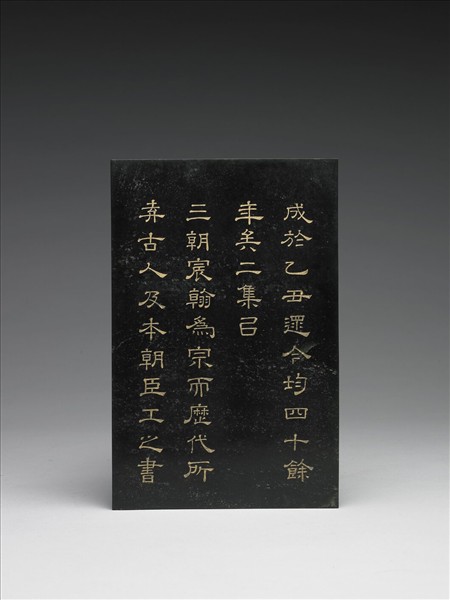 成於乙丑遝今均四十餘
年矣二集㠯
三朝宸翰爲宗而歷代所
弆古人及本朝臣工之書